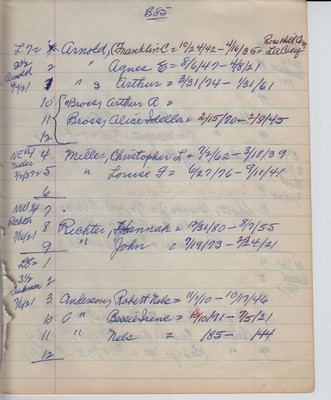 B85
L7= 1 Arnold, Franklin C = 10/24/42 - 4/16/35= Rose Hill Cem
2 " Agnes E = 8/6/47 - 4/8/21
Arnold " 3 " Arthur = 3/31/74 - 1/31/61
4/9/21
10 "Bross, Arthur A =
11 Bross, Alice Idella = 2/15/70 - 2/8/45
12
NE 1/4 4 Miller, Christopher L = 7/7/62 - 3/18/39
5 " Louise F = 6/27/76 - 9/11/41
6
NW 1/4 7
Richter 8 Richter, Hannah = 12/21/80 - 8/7/55
9 " John = 7/19/73 - 2/24/21
L8= 1
3 1/2 2
7/6/21 3 Anderson, Robert Nels = 11/1/10 - 10/17/46
10 " Bessie Irene = 12/10/91 - 7/5/21
11 " Nels = 185- 144
12